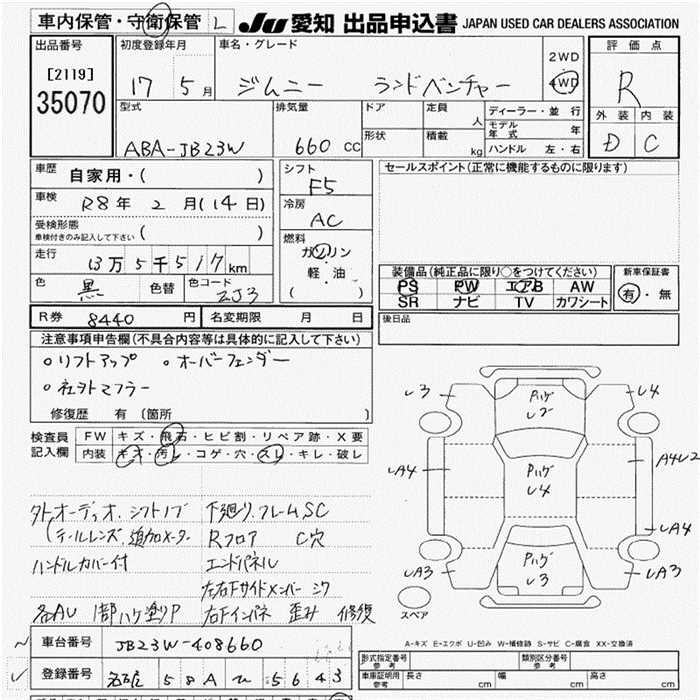 車内保管・守衛保管 L JU 愛知 出品申込書 JAPAN USED CAR DEALERS ASSOCIATION
出品番号 初度登録年月 車名・グレード 評価点
[2119] 35070
17 5月 ジムニー ランドベンチャー 2WD 4WD R
型式 排気量 ドア 定員 人 ディーラー・並行 外装 内装
形状 積載 kg モデル年式 年
ABA-JB23W 660 CC ハンドル 左・右 D C
車歴 自家用・( ) シフト F5 セールスポイント(正常に機能するものに限ります)
車検 R8年 2月(14日) 冷房 AC
受検形態 車検付きのみ記入して下さい ( )
燃料 ガソリン・軽油 ( )
走行 13万5千517km
装備品(純正品に限り○をつけてください) 新車保証書
色 黒 色替 色コード ZJ3
PS PW エアB AW 有・無
SR ナビ TV カワシート
R券 8440円 名変期限 月 日 後日品
注意事項申告欄(不具合内容等は具体的に記入して下さい)
○リフトアップ ○オーバーフェンダー
○社外マフラー
修復歴 有(箇所 )
検査員記入欄 FW キズ・飛石・ヒビ割・リペア跡・X要
内装 キズ・汚レ・コゲ・穴・スレ・キレ・破レ
L3 PハゲL2 L4
LA4 PハゲL4 A4L2
LA4
LA3 PハゲL3 LA3
スペア
外オーディオ、シフトノブ 下廻り、フレームSC
テールレンズ、追加メーター Rフロア C穴
ハンドルカバー付 エンドパネル
左右下サイドメンバー
各AU 1部ハケ塗りP 右下インパネ 歪み 修復
A-キズ E-エクボ U-凹み W-補修跡 S-サビ C-腐食 XX-交換済
車台番号 JB23W-408660
形式指定番号 参考 類別区分番号 参考
登録番号 58 5643
車庫証明用 参考 長さ cm 幅 cm 高さ cm